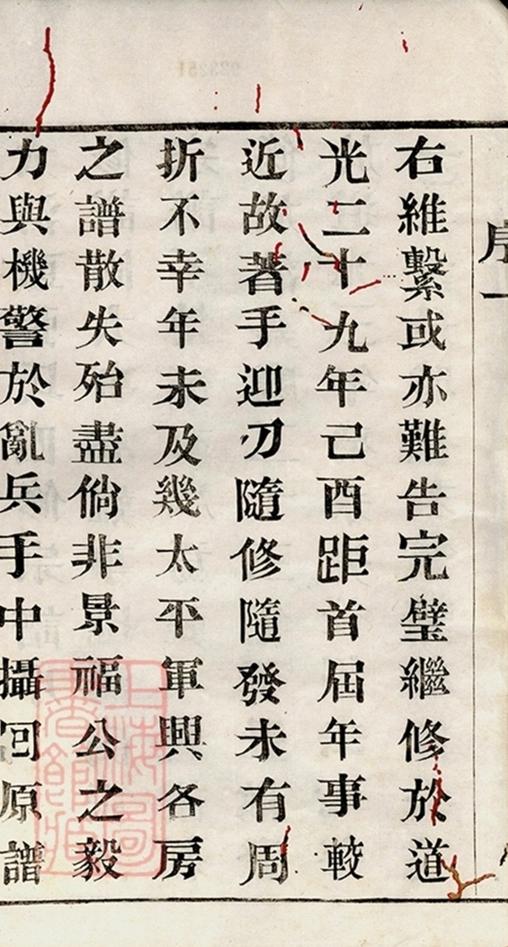 序一
右維繫或亦難告完璧繼修於道
光二十九年己酉距首屆年事較
近故著手迎刃隨修隨發未有周
折不幸年未及幾太平軍興各房
之譜散失殆盡倘非景福公之毅
力與機警於亂兵手中攝回原譜
上海圖書館藏